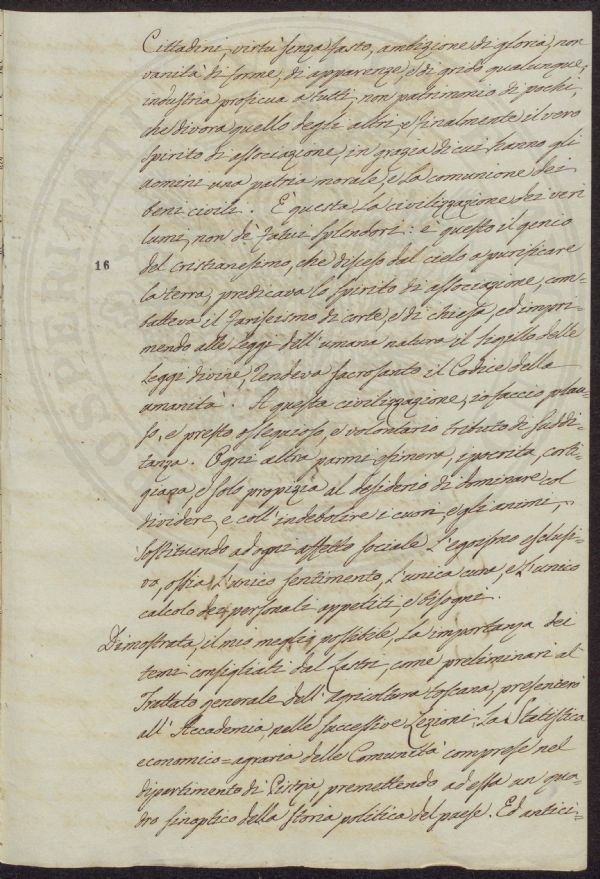 Cittadini, virtù senza fasto, ambizione di gloria, non
vanità di forme, di apparenze, e di grido qualunque;
industria proficua a tutti, non patrimonio di pochi,
che divora quello degli altri, e finalmente il vero
spirito di associazione, in grazia di cui hanno gli
uomini una patria morale, e la comunione dei
beni civili. È questa la civilizzazione dei veri
lumi, non de' falsi splendori: è questo il genio
16
del cristianesimo, che disceso dal cielo a purificare
la terra, predicava lo spirito di associazione, com=
batteva il fariseismo di corte, e di chiesa, ed impri=
mendo alle leggi dell'umana natura il sigillo delle
leggi divine, rendeva sacrosanto il Codice della
umanità. A questa civilizzazione, io faccio plau=
so, e presto ossequioso, e volontario tributo di suddi=
tanza. Ogni altra parmi efimera, ipocrita, corti=
giana e solo propizia al desiderio di dominare col
dividere, e coll'indebolire i cuori, e gli animi,
sostituendo ad ogni affetto sociale l'egoismo esclusi=
vo, ossia l'unico sentimento, l'unica cura, e l'unico
calcolo dei personali appetiti, e bisogni.
Dimostrata, il mio meglio possibile, la importanza dei
temi consigliati dal Lastri, come preliminari al
Trattato generale dell'agricoltura toscana, presenterò
all'Accademia nelle successive Lezioni: la Statistica
economico=agraria delle Comunità comprese nel
dipartimento di Pistoja, premettendo ad essa un qua=
dro sinoptico della storia politica del paese. Ed antici=
PROSPERITATI